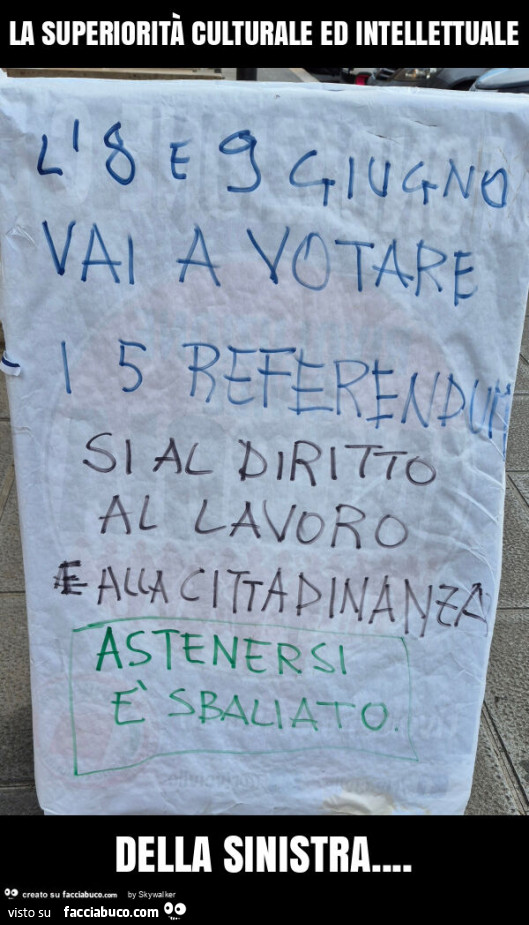 LA SUPERIORITÀ CULTURALE ED INTELLETTUALE
L'8 E 9 GIUGNO
VAI A VOTARE
- I 5 REFERENDUM
SI AL DIRITTO
AL LAVORO
E ALLA CITTADINANZA
ASTENERSI
E' SBALIATO.
DELLA SINISTRA....
creato su facciabuco.com by Skywalker
visto su facciabuco.com